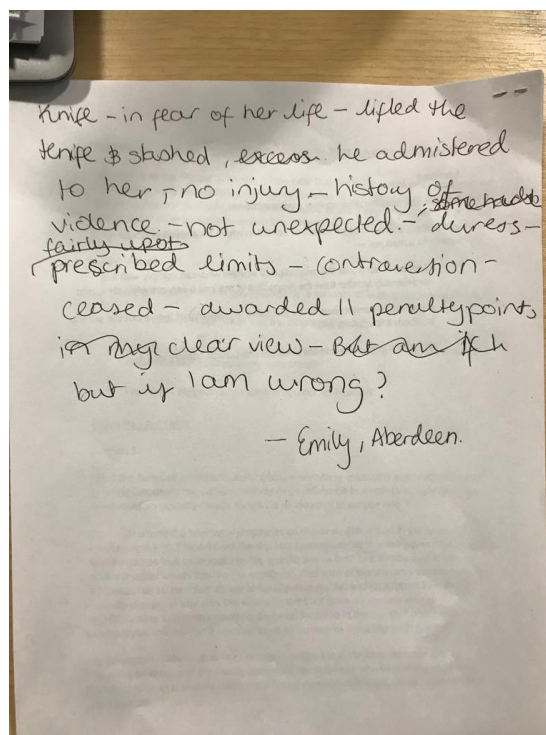 Knife - in fear of her life - lifted the
knife & slashed, excess he admistered
to her, - no injury - history of
violence. - not unexpected. - duress -
fairly upset
prescribed limits - contravention -
ceased - awarded 11 penalty points
in my clear view - But am I
but if I am wrong?
- Emily, Aberdeen.